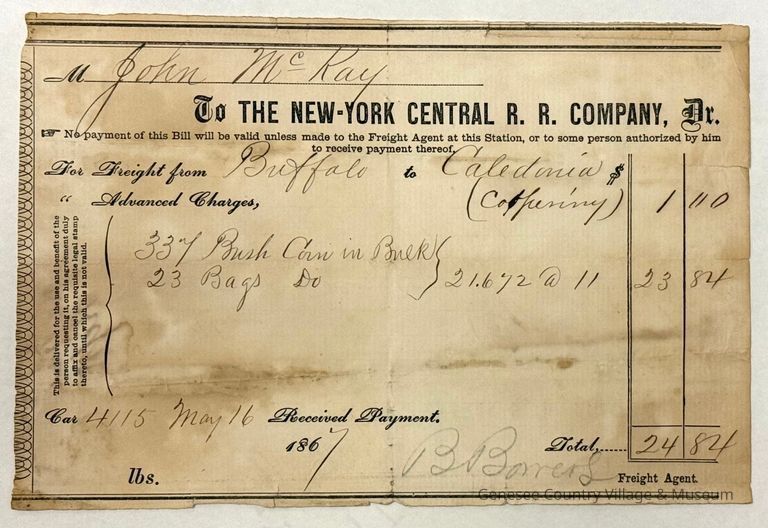 M John McKay
To THE NEW-YORK CENTRAL R. R. COMPANY, Dr.
☞ No payment of this Bill will be valid unless made to the Freight Agent at this Station, or to some person authorized by him
to receive payment thereof.
For Freight from Buffalo to Caledonia $
“ Advanced Charges, 1
337 Bush Corn in Bulk
23 Bags Do 21.672 @ 11 23 84
This is delivered for the use and benefit of the
person requesting it, on his agreement duly
to affix and cancel the requisite legal stamp
thereto, until which this is not valid.
Car 4115 May 16 Received Payment.
1867 Total,...... 24 84
lbs. B Bowers Freight Agent.
Genesee Country Village & Museum